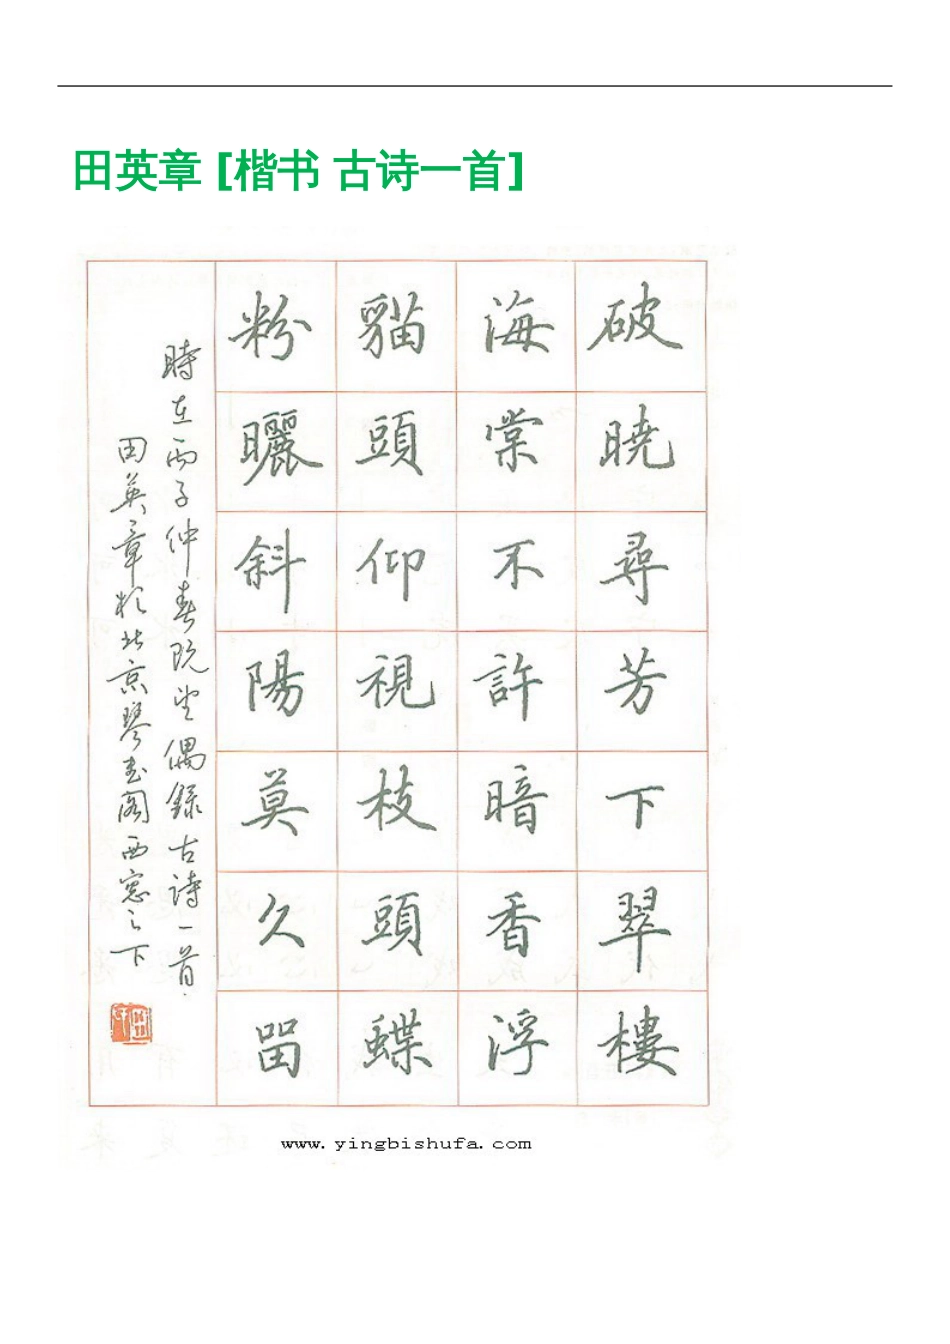 田英章 [楷书 古诗一首]
破曉尋芳下翠樓
海棠不許暗香浮
貓頭仰視枝頭蝶
粉曬斜陽莫久留
時在丙子仲春既望偶錄古詩一首
田英章於北京琴書閣西窓之下
www.yingbishufa.com